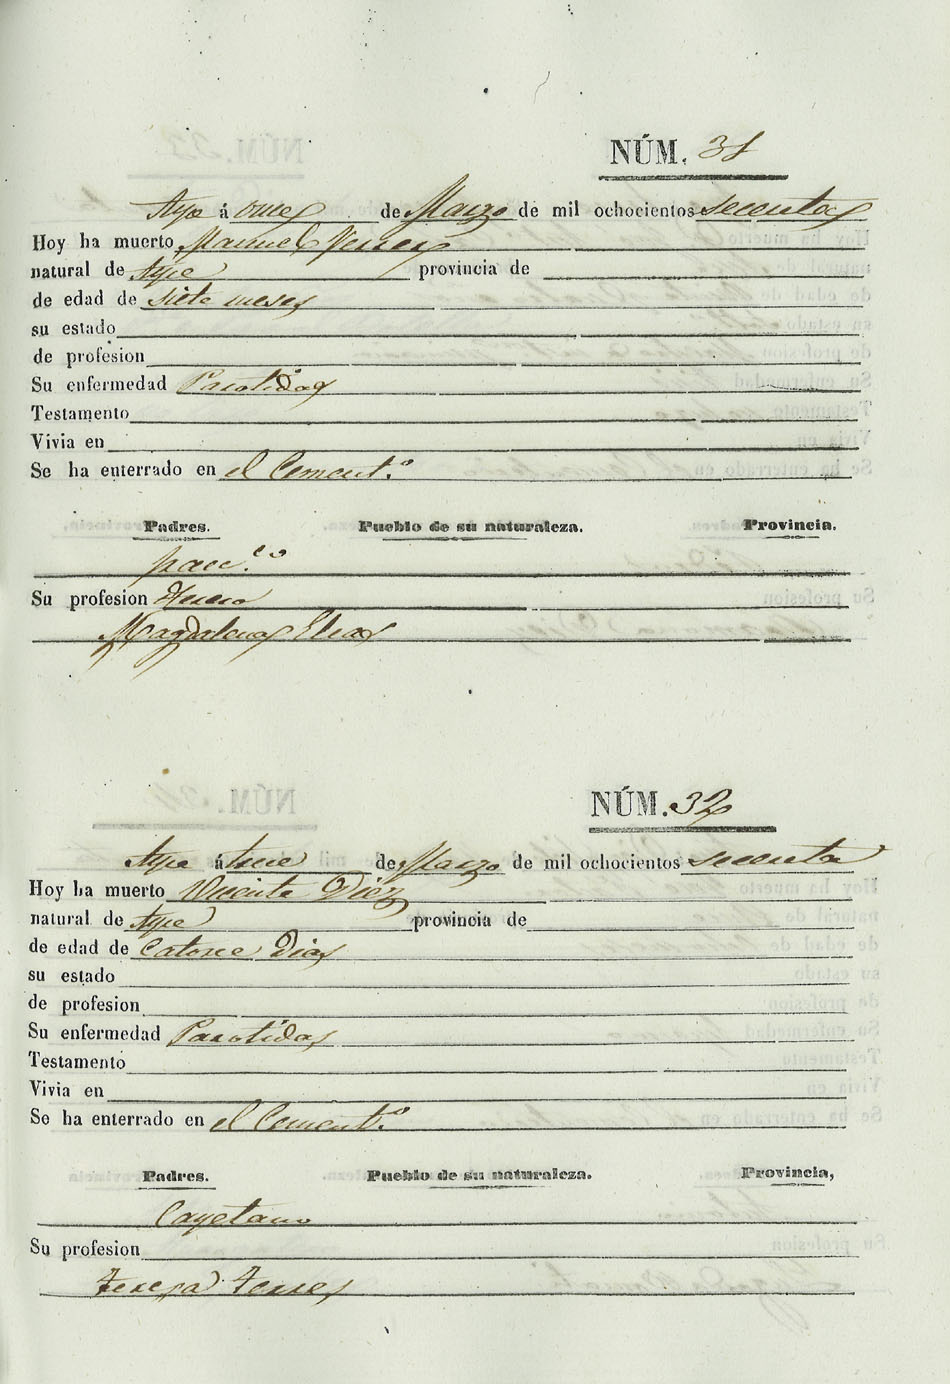 NÚM. 31
Aype á once de Marzo de mil ochocientos secenta
Hoy ha muerto Manuel
natural de Aype provincia de
de edad de siete meses
su estado
de profesion
Su enfermedad Parotidas
Testamento
Vivia en
Se ha enterrado en el Cement.º
Padres. Pueblo de su naturaleza. Provincia.
Su profesion
Magdalena Elias
NÚM. 32
Aype á trece de Marzo de mil ochocientos secenta
Hoy ha muerto Vicente Diez
natural de Aype provincia de
de edad de Catorce Dias
su estado
de profesion
Su enfermedad Parotidas
Testamento
Vivia en
Se ha enterrado en el Cement.º
Padres. Pueblo de su naturaleza. Provincia,
Cayetano
Su profesion
Teresa Ferrer